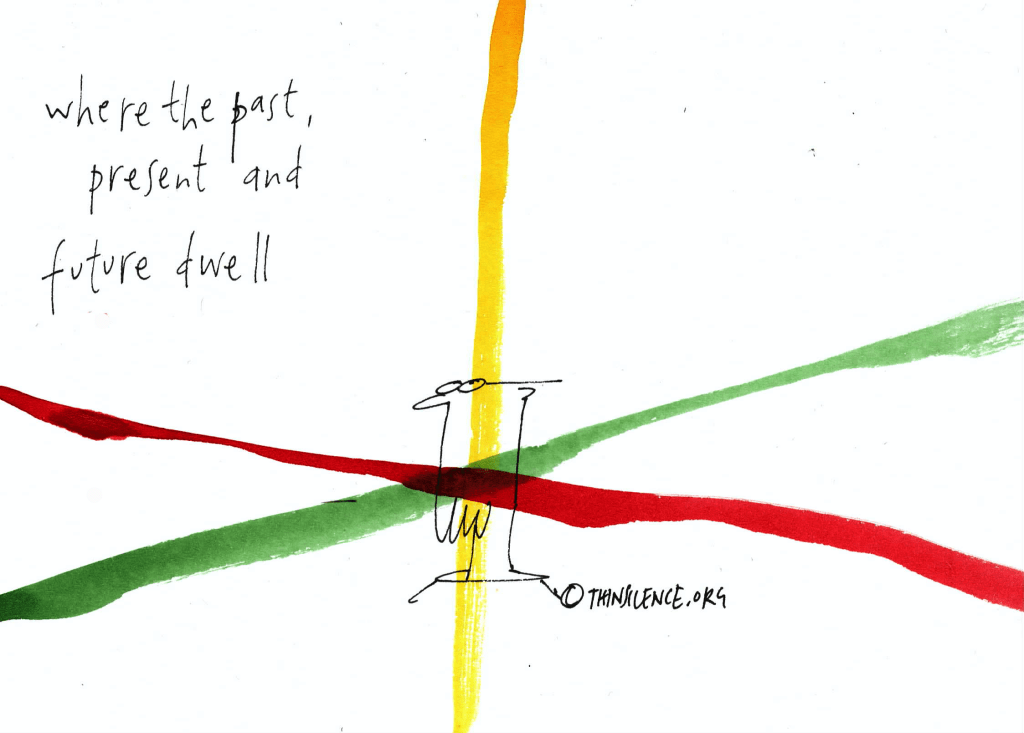 where the past,
present and
future dwell
© THINSILENCE.ORG